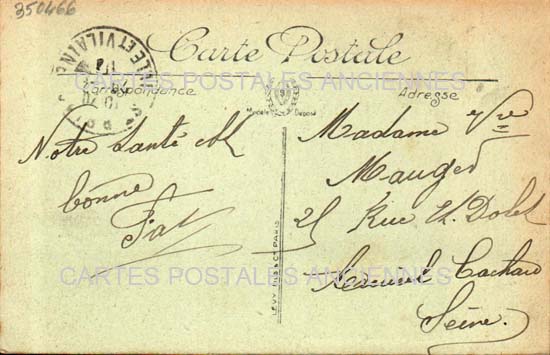 350466
Carte Postale
CARTES POSTALES ANCIENNES
Correspondance
Adresse
ILLE ET VILAINE
Modèle Déposé
Notre Santé est
bonne
Madame Vve
Mauger
25 Rue Et. Dolet
Arcueil Cachan
Seine
CARTES POSTALES ANCIENNES
PARIS